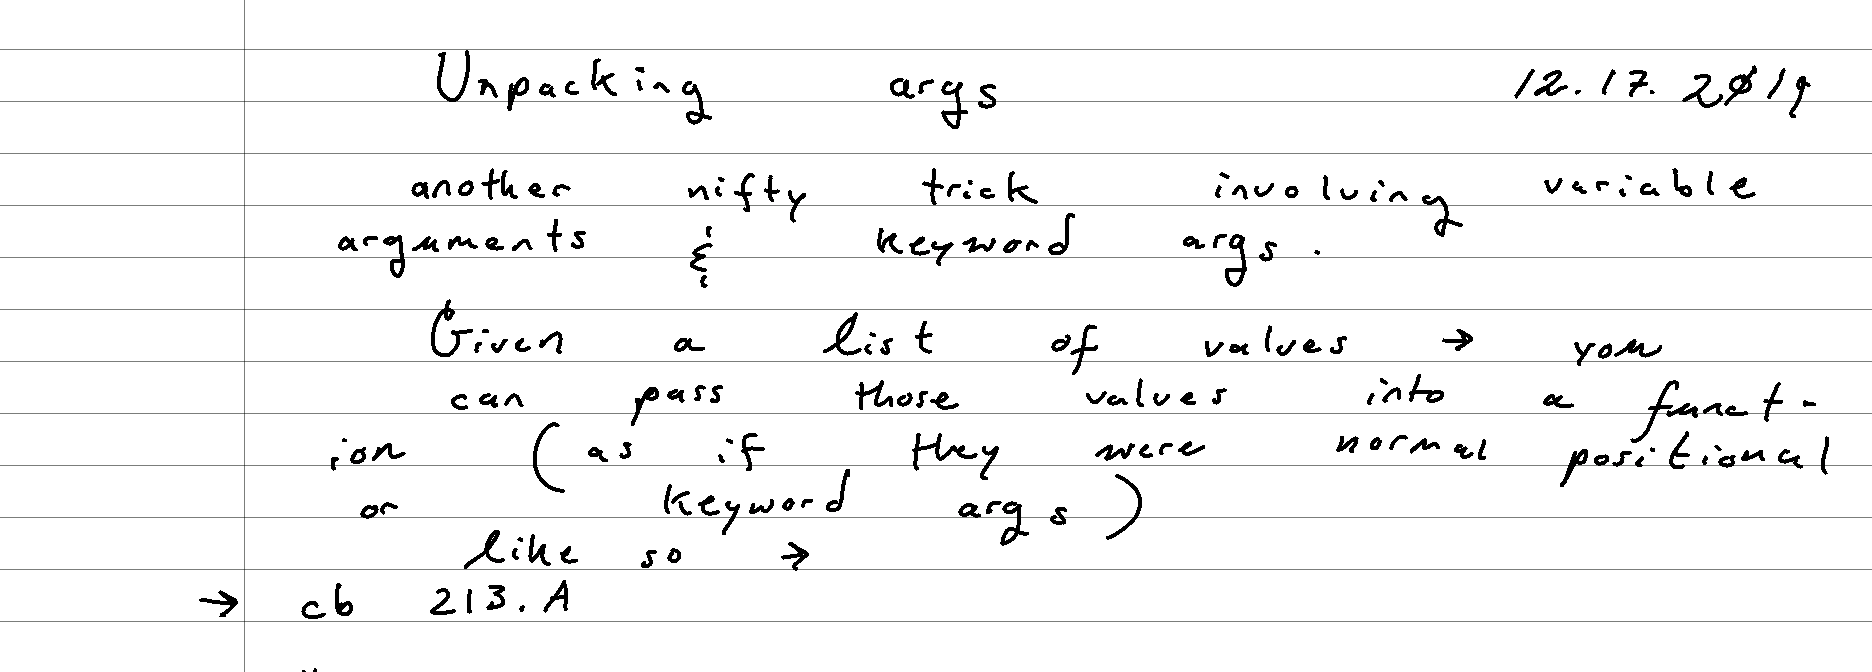 Unpacking args 12.17.2019
another nifty trick involving variable
arguments & keyword args.
Given a list of values → you
can pass those values into a funct-
ion (as if they were normal positional
or keyword args)
like so →
→ cb 213.A